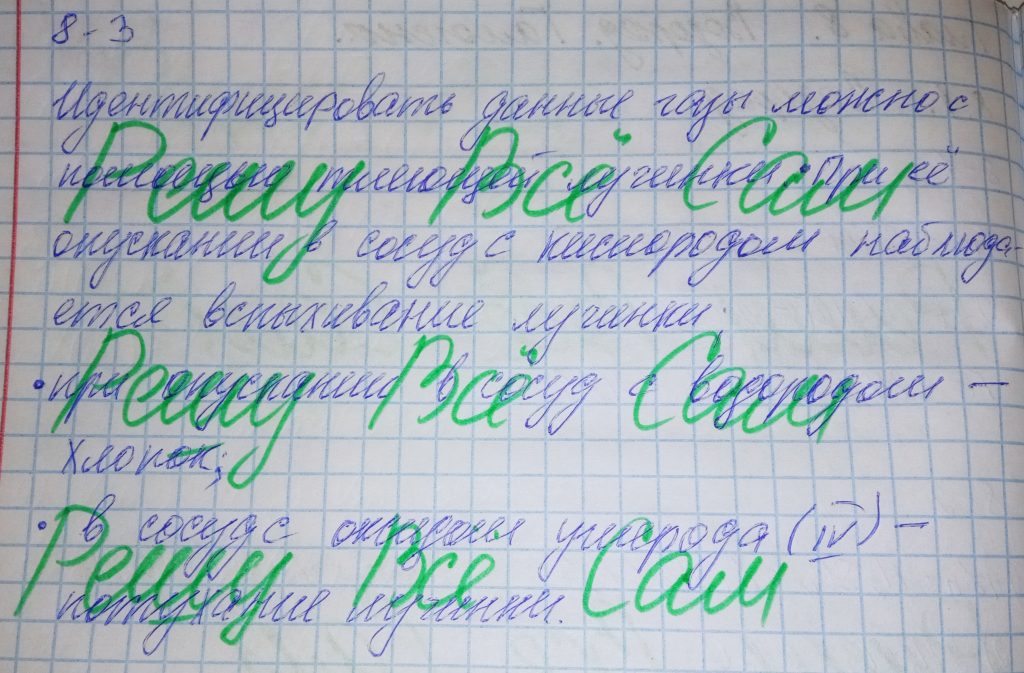 8-3
Идентифицировать данные газы можно с
помощью тлеющей лучинки. При её
опускании в сосуд с кислородом наблюда-
ется вспыхивание лучинки,
• при опускании в сосуд с водородом –
хлопок;
• в сосуд с оксидом углерода (IV) –
потухание лучинки.
Решу Всё Сам
Решу Всё Сам
Решу Всё Сам